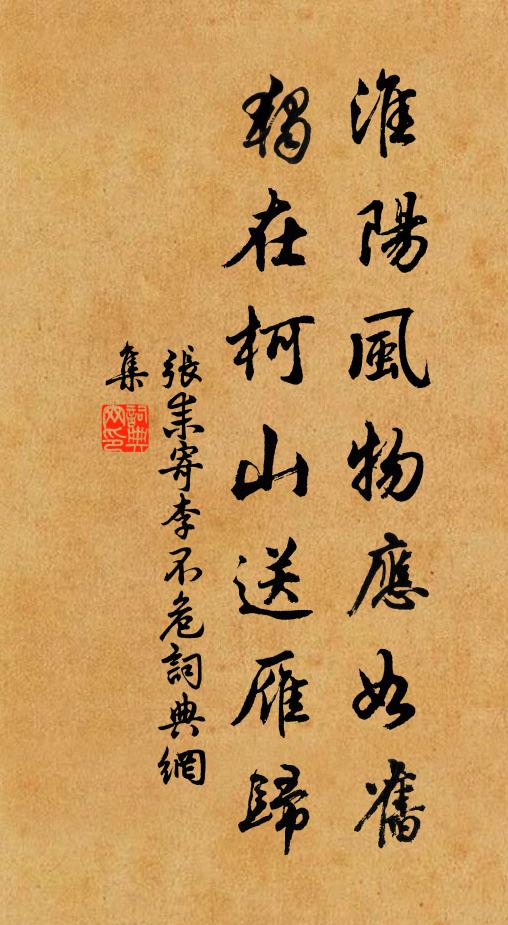 淮陽風物應如舊
獨在柯山送雁歸
張耒寄李不危詞典網
集
詞典網印